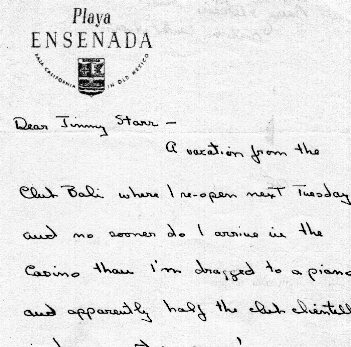 Playa
ENSENADA
BAJA CALIFORNIA IN OLD MEXICO
Dear Jimmy Starr —
A vacation from the
Club Bali where I re-open next Tuesday
and no sooner do I arrive in the
Casino than I'm dragged to a piano
and apparently half the club clientell